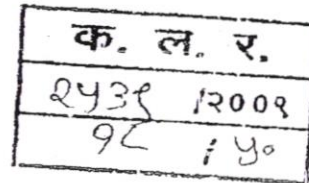 क. ल. र.
२५३९ /२००९
१८ / ५०